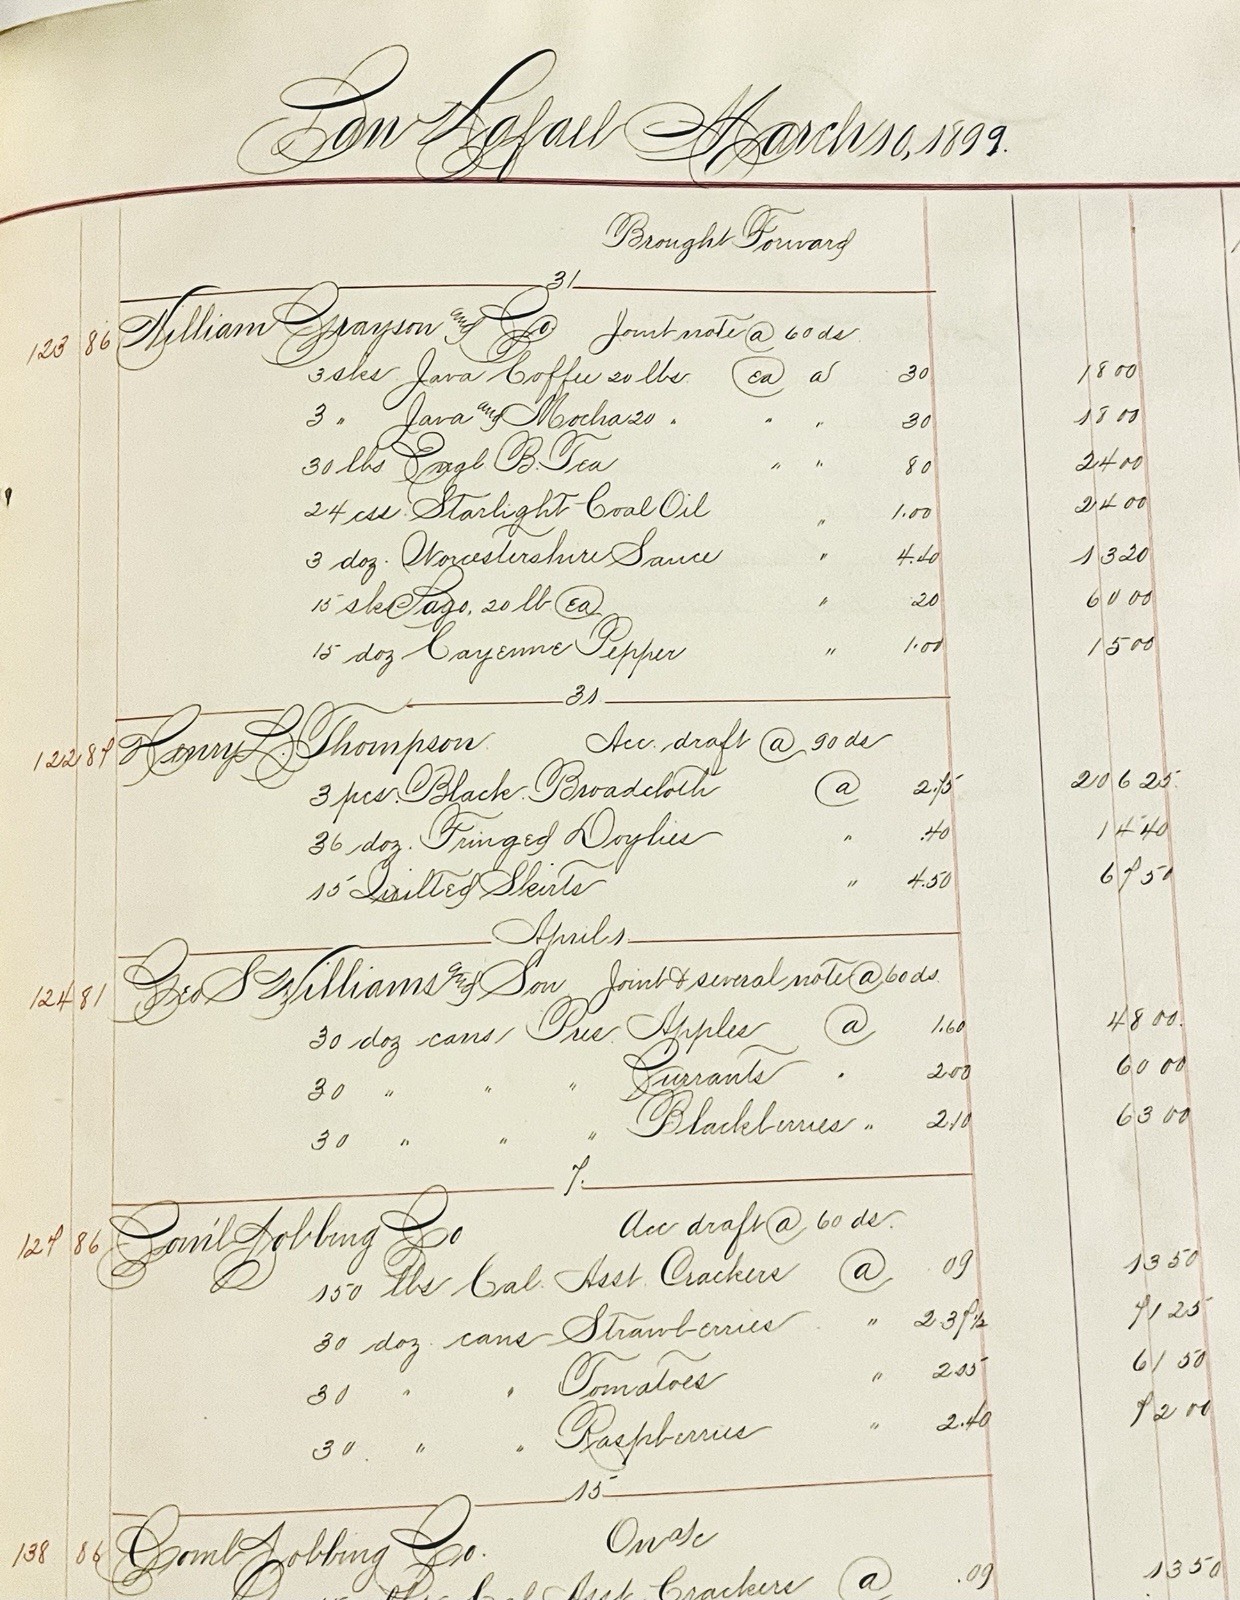 San Rafael March 10, 1899.
Brought Forward
31
123 86 William Grayson and Co Joint note @ 60 ds
3 sks Java Coffee 20 lbs ea a 30 18 00
3 " Java and Mocha 20 " " " 30 18 00
30 lbs Engl B. Tea " " 80 24 00
24 css Starlight Coal Oil " 1.00 24 00
3 doz. Worcestershire Sauce " 4.40 13 20
15 sks Sago, 20 lb ea " .20 60 00
15 doz Cayenne Pepper " 1.00 15 00
31
122 87 Henry L. Thompson Acc. draft @ 90 ds
3 pcs. Black Broadcloth @ 2.75 206 25
36 doz. Fringed Doylies " .40 14 40
15 Quilted Skirts " 4.50 67 50
April 1
124 81 Geo S Williams and Son Joint & several note @ 60 ds
30 doz cans Pres. Apples @ 1.60 48 00.
30 " " " Currants " 2.00 60 00
30 " " " Blackberries " 2.10 63 00
7.
127 86 Jobbing Co Acc draft @ 60 ds.
150 lbs Cal. Asst. Crackers @ 09 13 50
30 doz cans Strawberries " 2.37½ 71 25
30 " " Tomatoes " 2.05 61 50
30 " " Raspberries " 2.40 72 00
15
138 86 Jobbing Co. On a/c
Asst Crackers @ .09 13 50